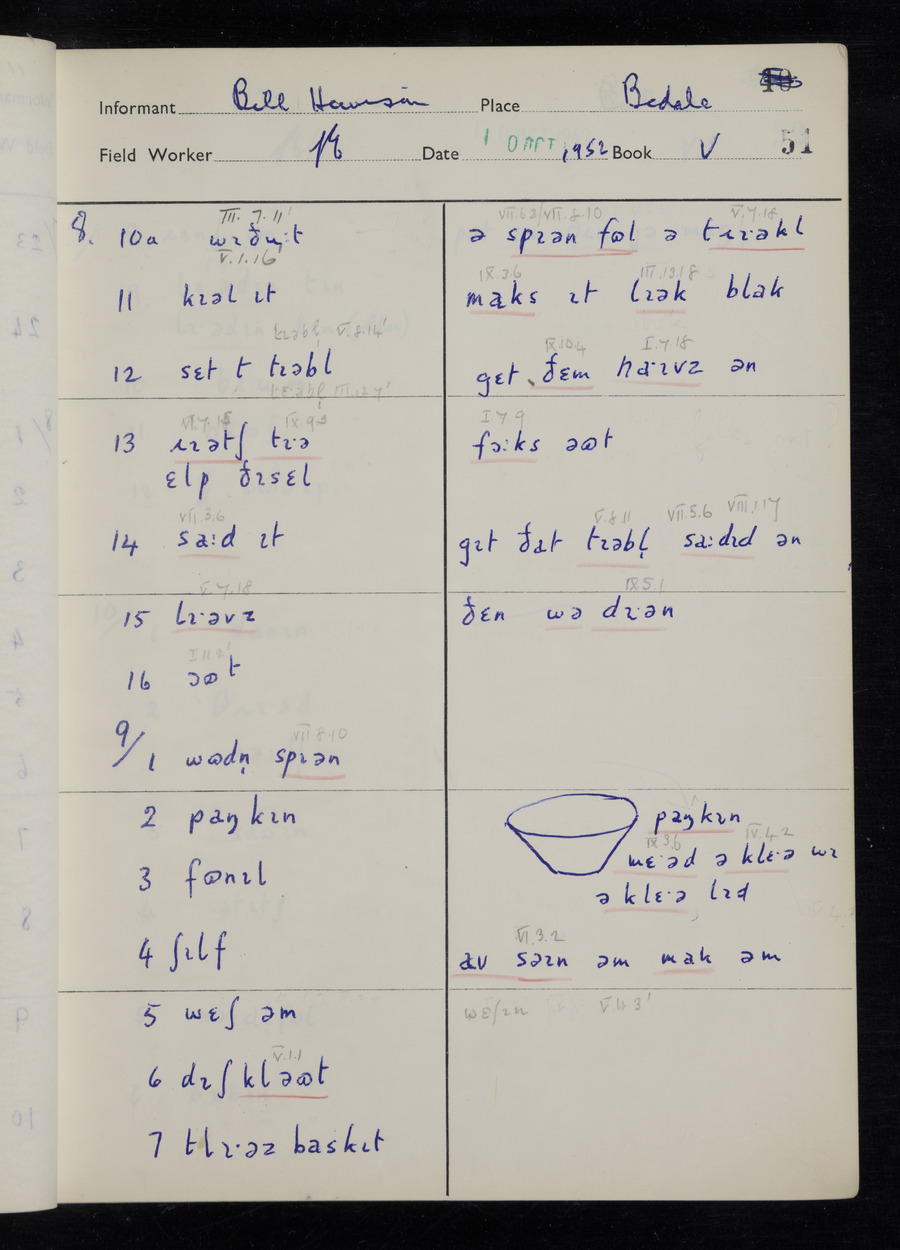 Informant Bill Place Bedale
Field Worker Date 1 OCT 1952 Book V 51
8. 10a wɪðɷʈ:t III. 7. 11' V.1.16'
ə spɪən fɷl ə tɹɪəkl VII.6.3/VII.8.10 V.7.18
11 kɪəl ɪt
maks ɪt lɪək blak IX.3.6 III.13.18
tɪəbl̩ V.8.14'
12 sɛt t tɪəbl
gɛt ðɛm naːɪvz ən IX.10.4 I.7.18
III.12.7'
13 ɹɪətʃ tɪ·ə VI.7.15 IX.9.3
fɔːks əɷt I.7.9
ɛlp ðɪsɛl
14 saːd ɪt VII.3.6
gɪt ðat tɪəbl̩ saːdɪd ən V.8.11 VII.5.6 VIII.1.17
15 lɪ·əvz V.7.18
ðɛn wə dɪ·ən IX.5.1
16 ɔɷt I.11.2'
9/1 wɷdn̩ spɪən VII.8.10
2 paŋkɪn
paŋkɪn
3 fɷnɪl
mɛ·əd ə klɛ·ə wɪ IX.3.6 IV.4.2
ə klɛ·ə lɪd
4 ʃɪlf
av səɪn əm mak əm VI.3.2
5 wɛʃ əm
wɛʃɪn
6 dɪʃkləɷt V.1.1
7 tlɪ·əz baskɪt